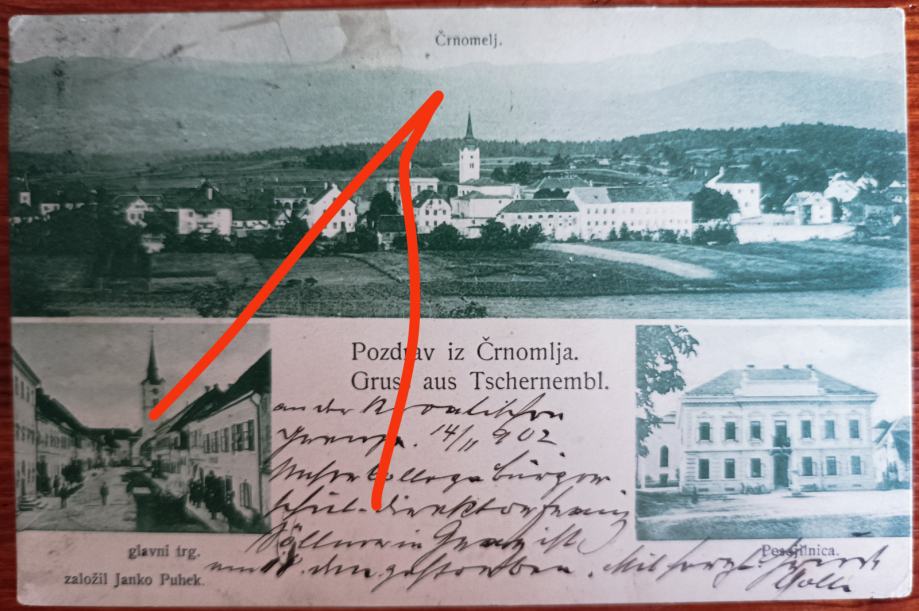 Črnomelj.
Pozdrav iz Črnomlja.
Gruss aus Tschernembl.
an der Kroatischen
Grenze. 14/11 902
bürger
schul-direktor
in Graz ist
am 12. gestorben. Mit
glavni trg.
založil Janko Puhek.
Posojilnica.